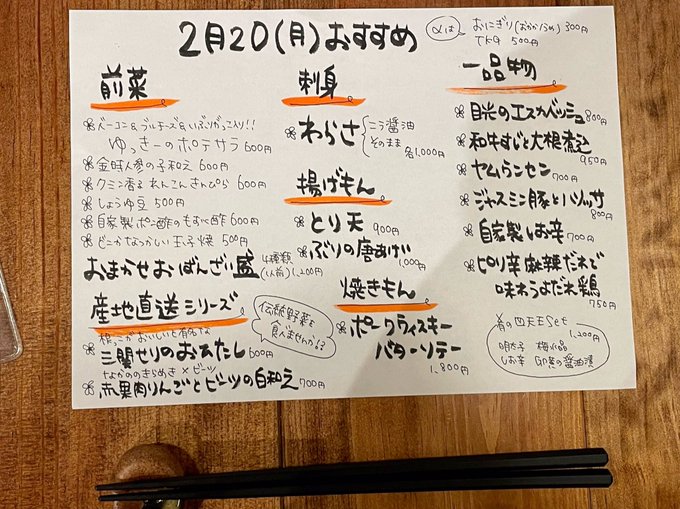 2月20(月)おすすめ
〆は
おにぎり(おかか/うめ) 300円
TKG 500円
前菜
ベーコン&ブルーチーズ&いぶりがっこ入り!!
ゆっきーのポテサラ 600円
金時人参の子和え 600円
クミン香るれんこんきんぴら 600円
しょうゆ豆 500円
自家製ポン酢のもずく酢 600円
どこかなつかしい玉子焼 500円
おまかせおばんざい盛 4種類(1人前) 1,200円
産地直送シリーズ
根っこがおいしいと有名な
三関せりのおひたし 600円
なかののきらめき×ビーツ
赤果肉りんごとビーツの白和え 700円
伝統野菜を
食べませんか!?
刺身
わらさ
ニラ醤油
そのまま
各1,000円
揚げもん
とり天 900円
ぶりの唐あげ 1,000円
焼きもん
ポークウィスキー
バターソテー
1,800円
一品物
目光のエスカベッシュ 800円
和牛すじと大根煮込 950円
ヤムウンセン 700円
ジャスミン豚とハツ 800円
自家製しお辛 700円
ピリ辛麻辣だれで
味わうよだれ鶏 750円
肴の四天王Set 1,200円
明太子 梅水晶
しお辛 卵黄の醤油漬